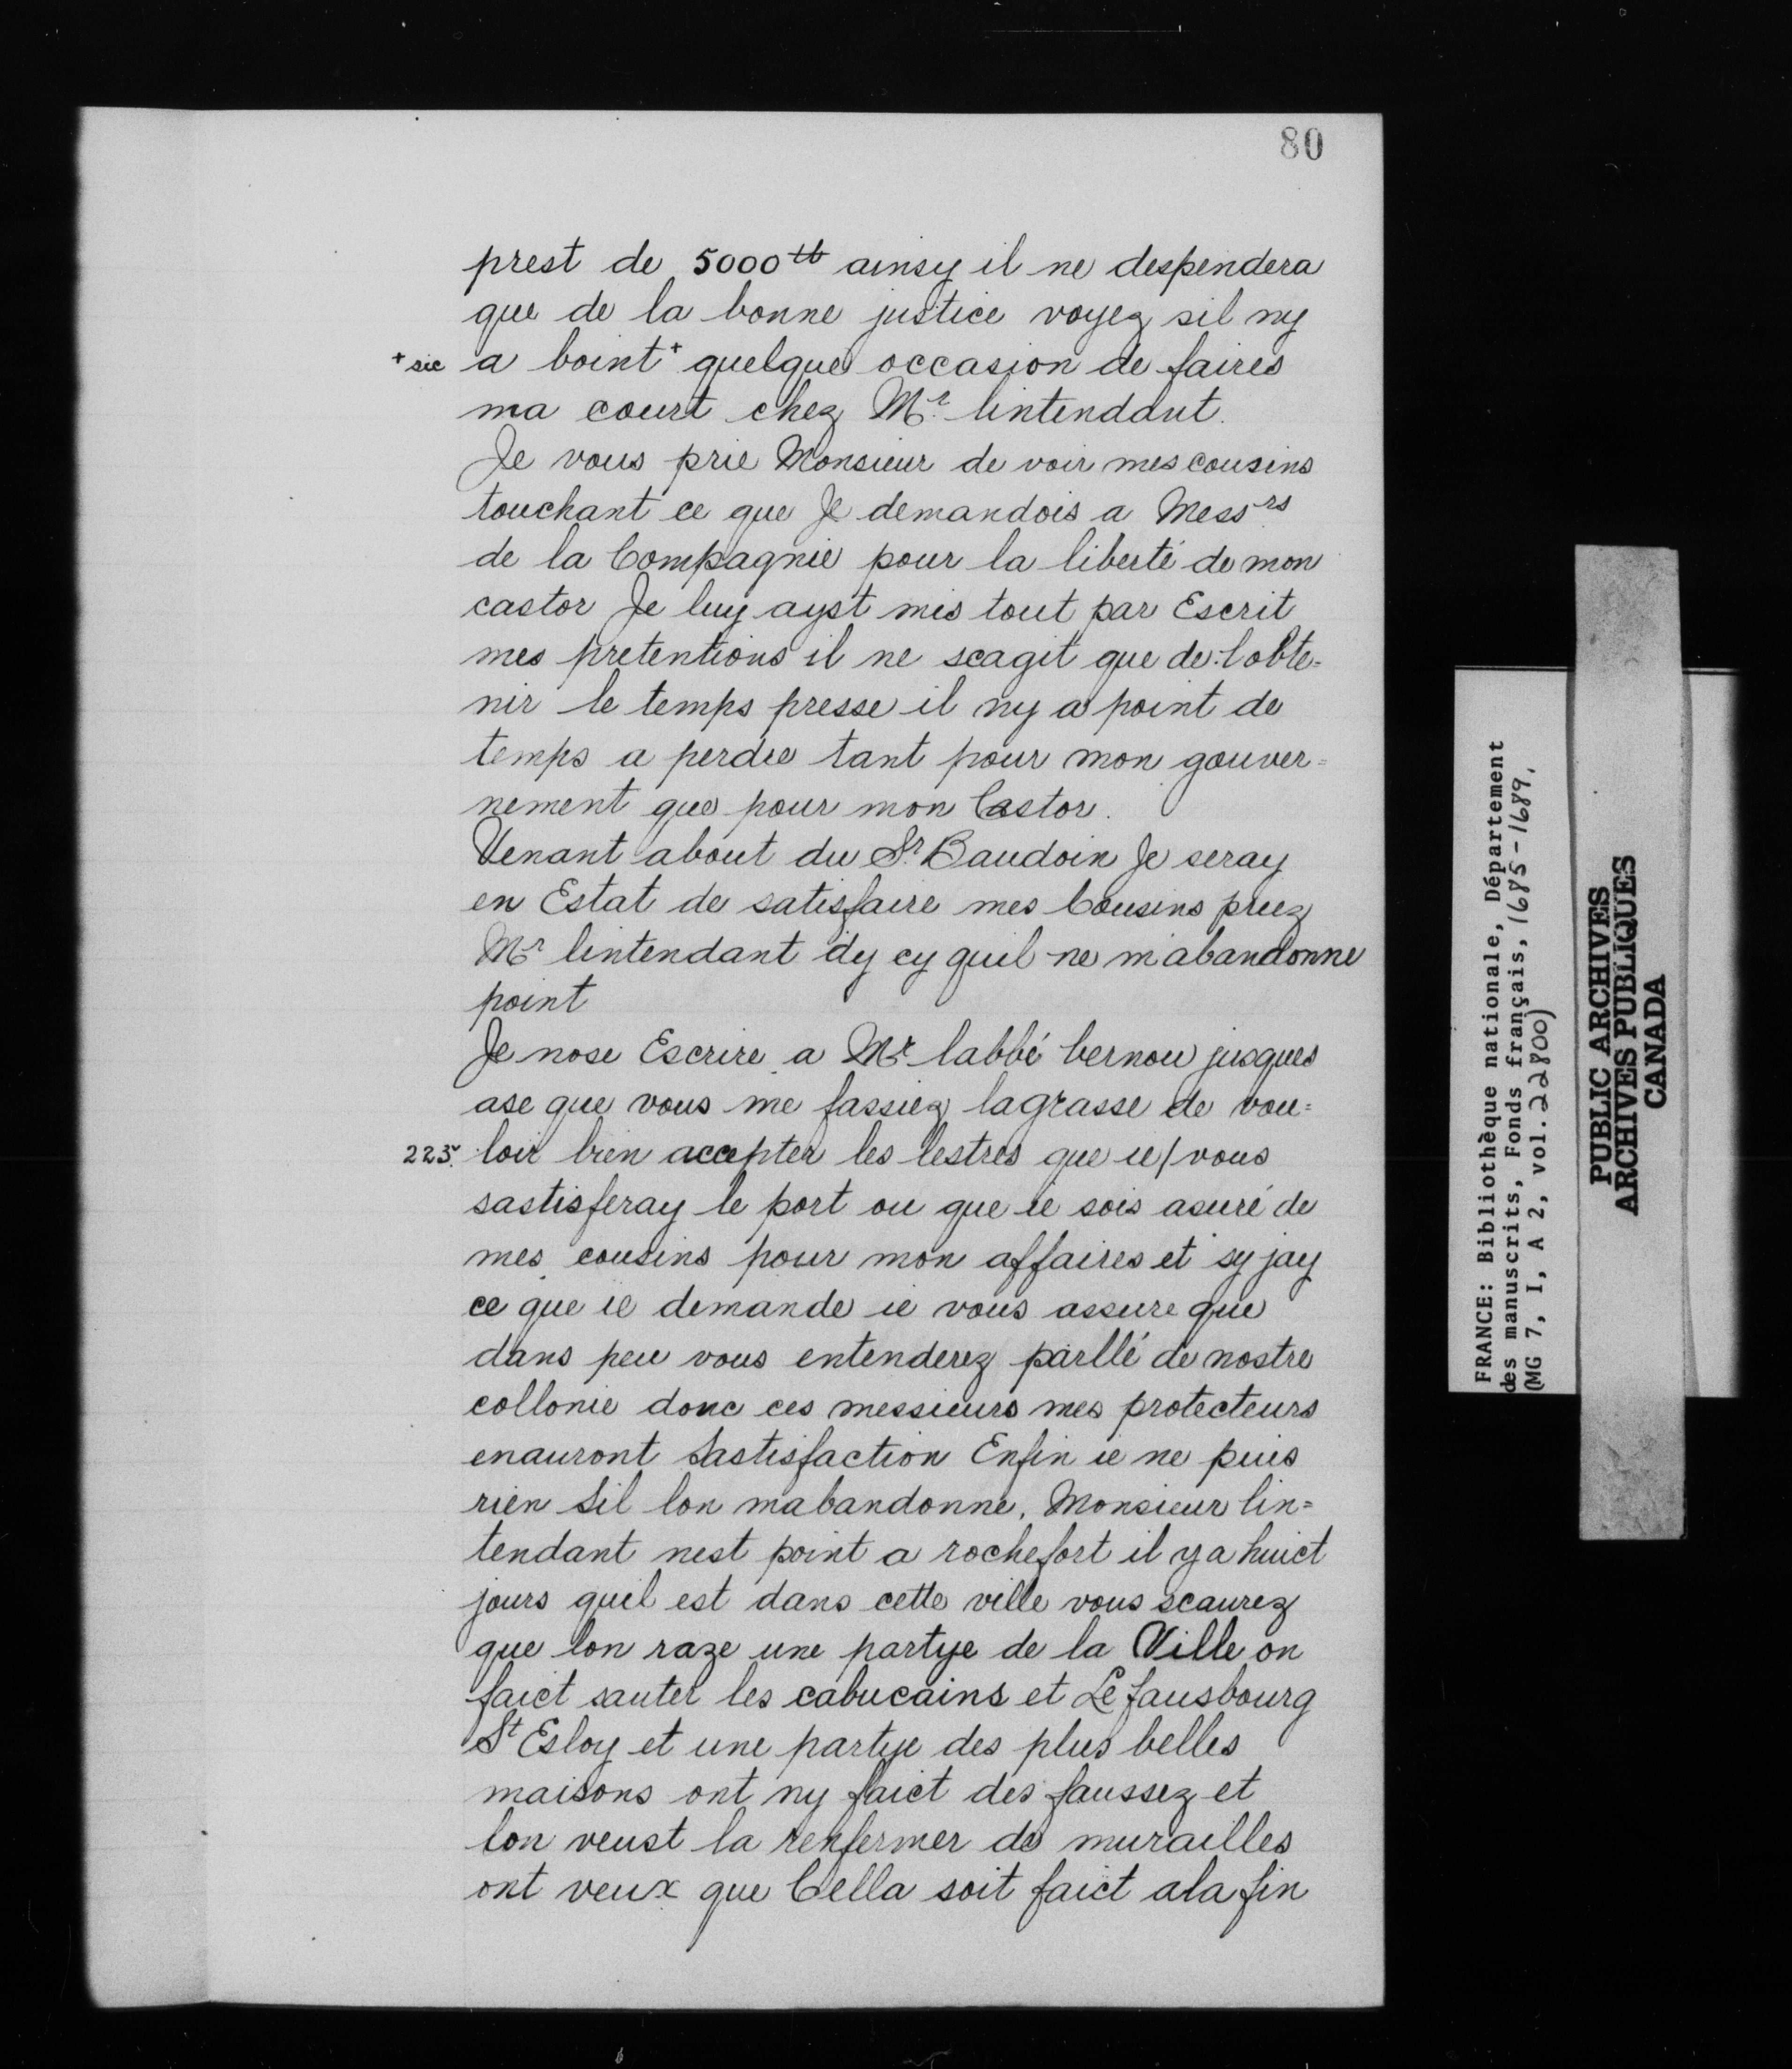 80
prest de 5000tt ainsy il ne despendera
que de la bonne justice voyez sil ny
+ sic a boint+ quelque occasion de faires
ma court chez Mr. lintendant.
Je vous prie Monsieur de voir mes cousins
touchant ce que Je demandois a Messrs
de la Compagnie pour la liberté de mon
castor Je luy ayst mis tout par Escrit
mes pretentions il ne scagit que de lobte=
nir le temps presse il ny a point de
temps a perdre tant pour mon gouver=
nement que pour mon Castor.
Venant about du Sr. Baudoin Je seray
en Estat de satisfaire mes Cousins priez
Mr lintendant dy cy quil ne m'abandonne
point
Je nose Escrire a Mr. labbé bernou jusques
ase que vous me fassiez lagrasse de vou=
225. loir bien accepter les lestres que ie/vous
sastisferay le port ou que ie sois asuré de
mes cousins pour mon affaires et sy jay
ce que ie demande ie vous assure que
dans peu vous entenderez parllé de nostre
collonie donc ces messieurs mes protecteurs
enauront Sastisfaction Enfin ie ne puis
rien Sil lon mabandonne. Monsieur lin=
tendant nest point a rochefort il y a huict
jours quil est dans cette ville vous scaurez
que lon raze une partye de la Ville on
faict sauter les cabucains et Le fausbourg
St Esloy et une partye des plus belles
maisons ont ny faict des faussez et
lon veust la renfermer de murailles
ont veux que Cella soit faict ala fin
FRANCE: Bibliothèque nationale, Département
des manuscrits, Fonds français, 1685-1689.
(MG 7, I, A 2, vol. 22800)
PUBLIC ARCHIVES
ARCHIVES PUBLIQUES
CANADA